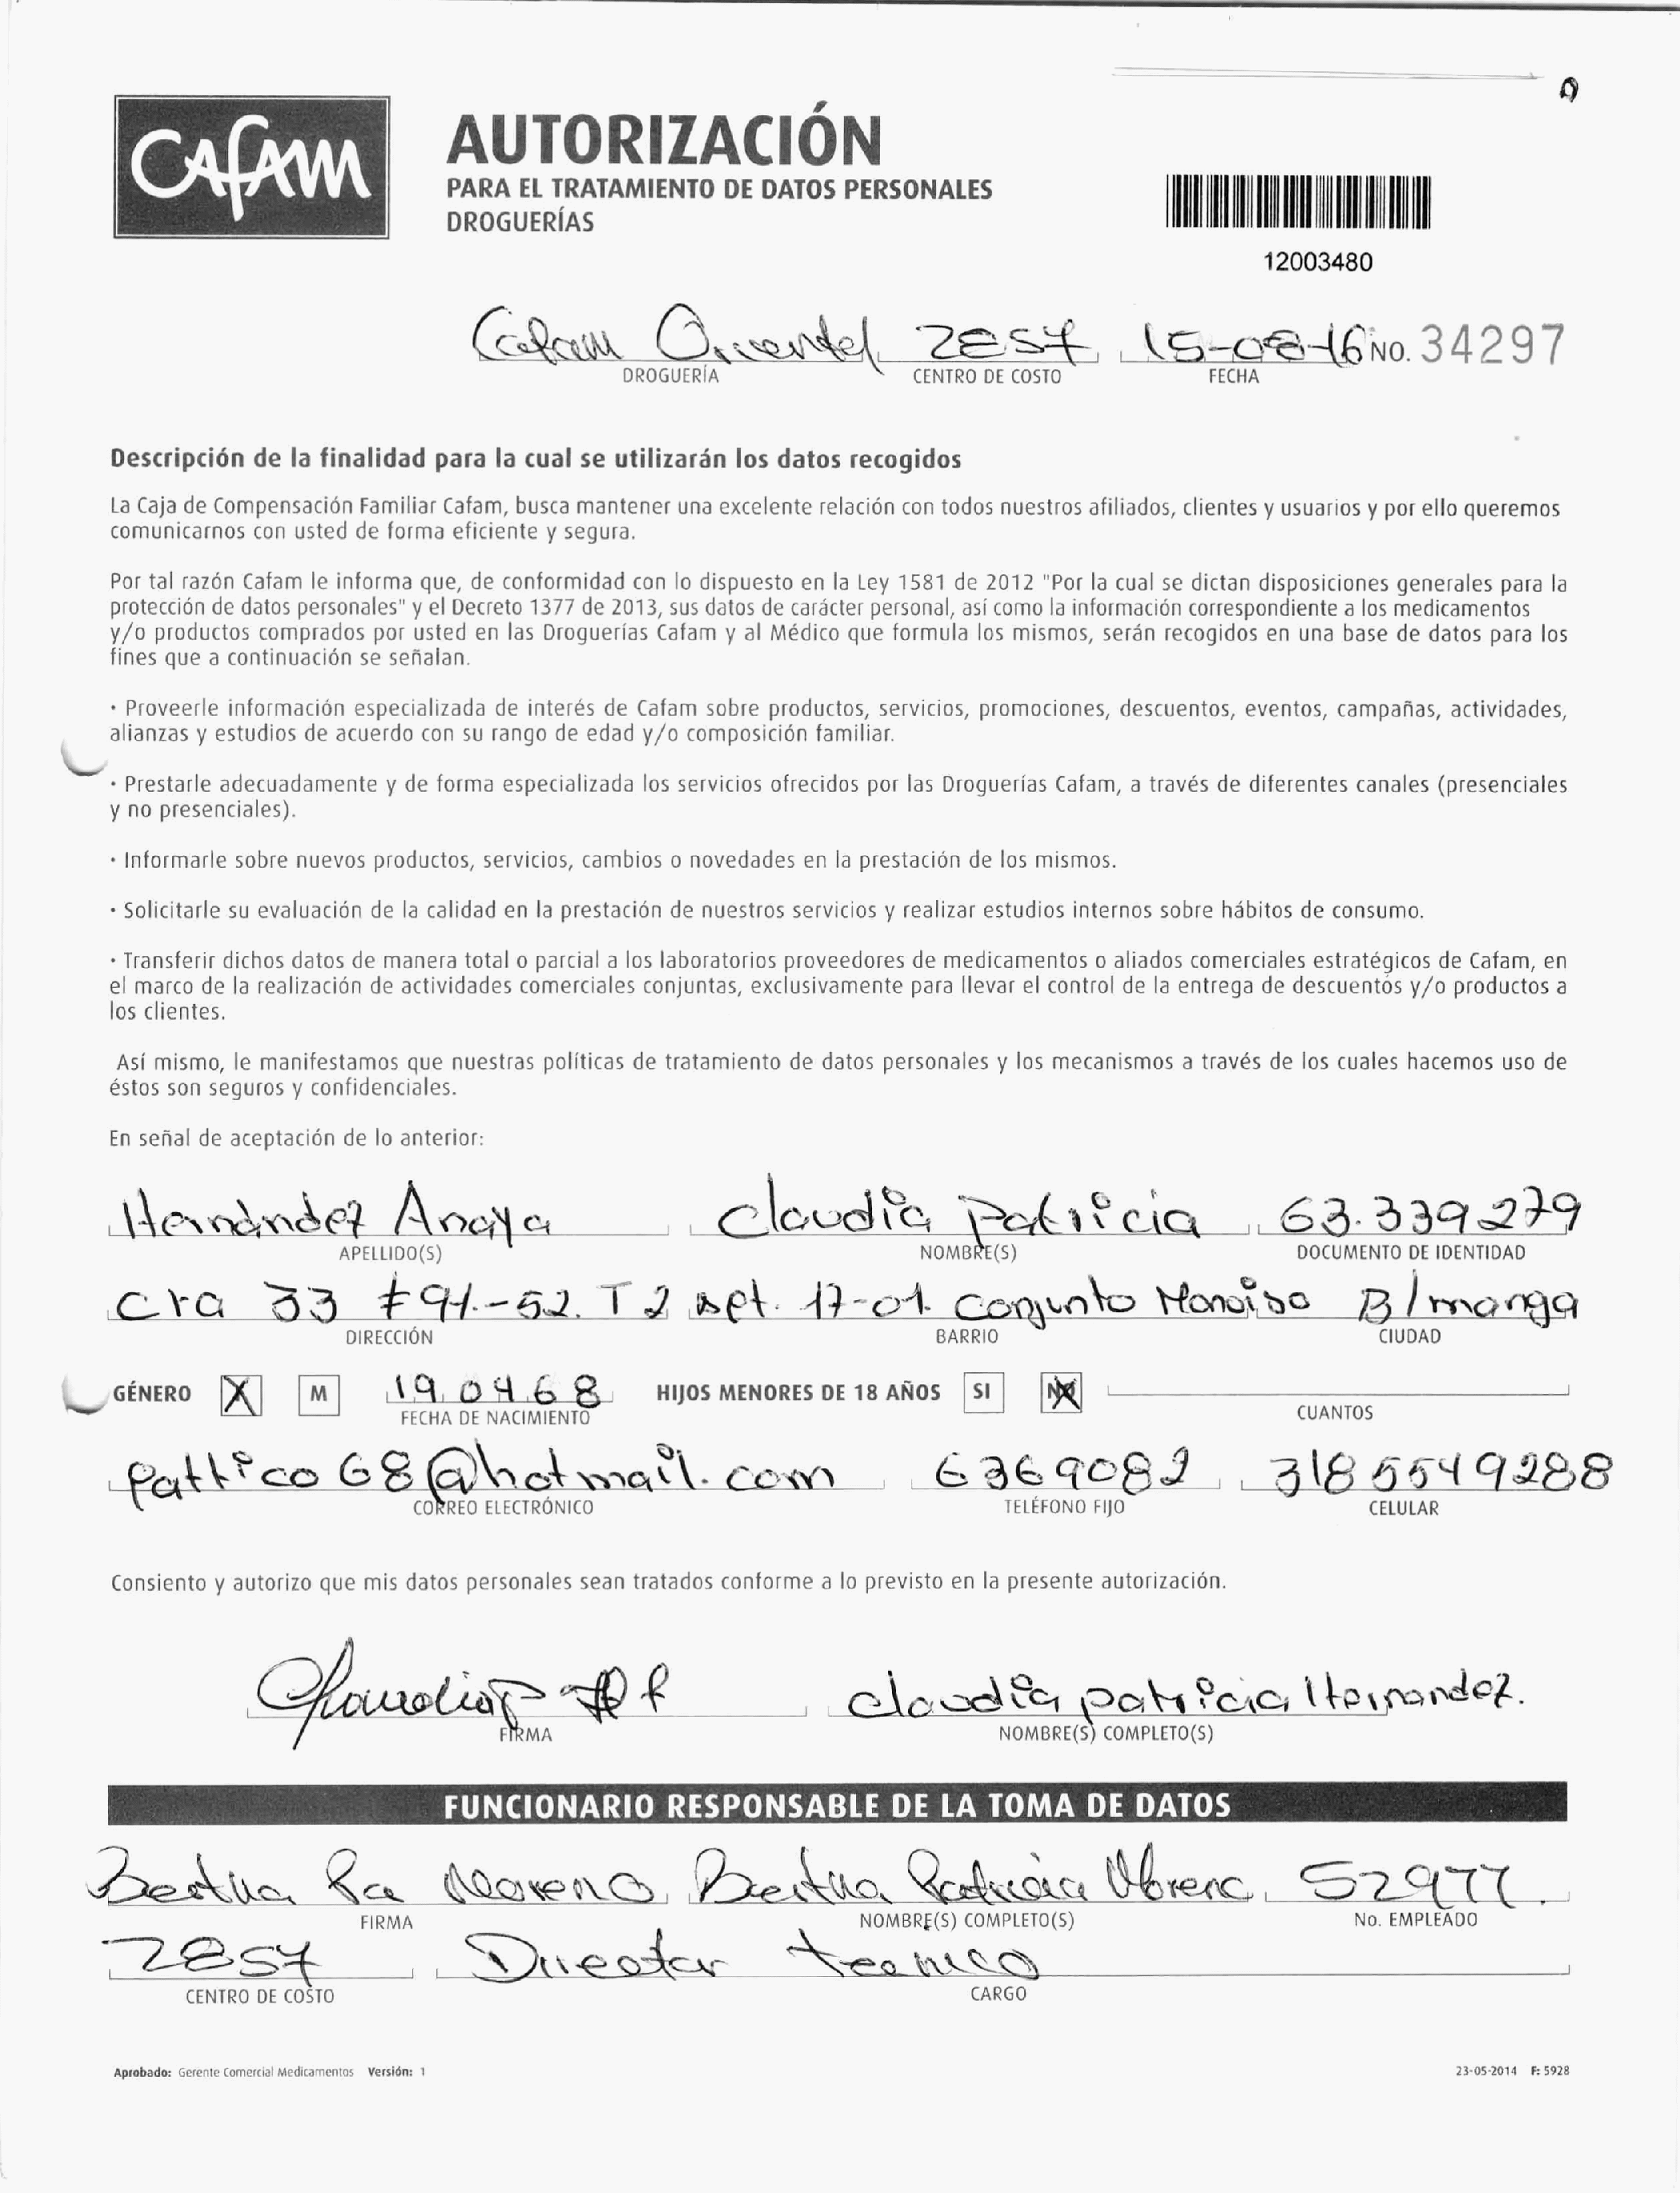 Cafam
AUTORIZACIÓN
PARA EL TRATAMIENTO DE DATOS PERSONALES
DROGUERÍAS
12003480
Cafam Oriental 2857 15-08-16 No. 34297
DROGUERÍA CENTRO DE COSTO FECHA
Descripción de la finalidad para la cual se utilizarán los datos recogidos
La Caja de Compensación Familiar Cafam, busca mantener una excelente relación con todos nuestros afiliados, clientes y usuarios y por ello queremos
comunicarnos con usted de forma eficiente y segura.
Por tal razón Cafam le informa que, de conformidad con lo dispuesto en la Ley 1581 de 2012 "Por la cual se dictan disposiciones generales para la
protección de datos personales" y el Decreto 1377 de 2013, sus datos de carácter personal, así como la información correspondiente a los medicamentos
y/o productos comprados por usted en las Droguerías Cafam y al Médico que formula los mismos, serán recogidos en una base de datos para los
fines que a continuación se señalan.
· Proveerle información especializada de interés de Cafam sobre productos, servicios, promociones, descuentos, eventos, campañas, actividades,
alianzas y estudios de acuerdo con su rango de edad y/o composición familiar.
· Prestarle adecuadamente y de forma especializada los servicios ofrecidos por las Droguerías Cafam, a través de diferentes canales (presenciales
y no presenciales).
· Informarle sobre nuevos productos, servicios, cambios o novedades en la prestación de los mismos.
· Solicitarle su evaluación de la calidad en la prestación de nuestros servicios y realizar estudios internos sobre hábitos de consumo.
· Transferir dichos datos de manera total o parcial a los laboratorios proveedores de medicamentos o aliados comerciales estratégicos de Cafam, en
el marco de la realización de actividades comerciales conjuntas, exclusivamente para llevar el control de la entrega de descuentos y/o productos a
los clientes.
Así mismo, le manifestamos que nuestras políticas de tratamiento de datos personales y los mecanismos a través de los cuales hacemos uso de
éstos son seguros y confidenciales.
En señal de aceptación de lo anterior:
Hernández Anaya Claudia Patricia 63.339.279
APELLIDO(S) NOMBRE(S) DOCUMENTO DE IDENTIDAD
Cra 33 #91-52. T2 apt. 17-01. Conjunto B/manga
DIRECCIÓN BARRIO CIUDAD
GÉNERO X M 190468 HIJOS MENORES DE 18 AÑOS SI NO
FECHA DE NACIMIENTO CUANTOS
pattico68@hotmail.com 6369082 3185549288
CORREO ELECTRÓNICO TELÉFONO FIJO CELULAR
Consiento y autorizo que mis datos personales sean tratados conforme a lo previsto en la presente autorización.
claudia patricia Hernandez.
FIRMA NOMBRE(S) COMPLETO(S)
FUNCIONARIO RESPONSABLE DE LA TOMA DE DATOS
Bertha Pa Moreno Bertha Patricia Moreno 52977
FIRMA NOMBRE(S) COMPLETO(S) No. EMPLEADO
2857 Director tecnico
CENTRO DE COSTO CARGO
Aprobado: Gerente Comercial Medicamentos Versión: 1 23-05-2014 F: 5928